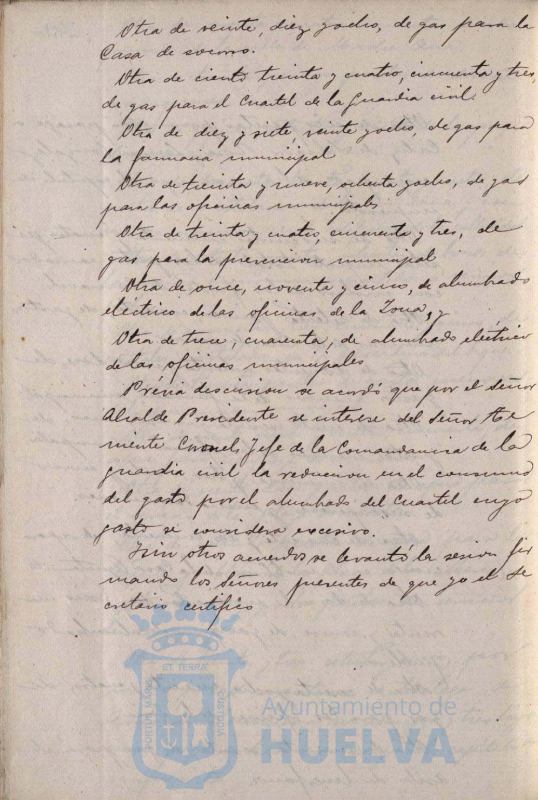 Otra de veinte, diez y ocho, de gas para la
Casa de socorro.
Otra de ciento treinta y cuatro, cincuenta y tres,
de gas para el Cuartel de la Guardia civil
Otra de diez y siete, veinte y ocho, de gas para
la farmacia municipal
Otra de treinta y nueve, ochenta y ocho, de gas
para las oficinas municipales
Otra de treinta y cuatro, cincuenta y tres, de
gas para la prevencion municipal
Otra de once, noventa y cinco, de alumbrado
eléctrico de las oficinas de la Zona, y
Otra de trece, cuarenta, de alumbrado eléctrico
de las oficinas municipales
Prévia discusion se acordó que por el señor
Alcalde Presidente se interese del Señor Te
niente Coronel, Jefe de la Comandancia de la
guardia civil la reduccion en el consumo
del gasto por el alumbrado del Cuartel cuyo
gasto se considera excesivo.
Y sin otros acuerdos se levantó la sesion fir
mando los Señores presentes de que yo el Se
cretario certifico
ET TERRÆ
PORTUS MARIS
CUSTODIA
Ayuntamiento de
HUELVA